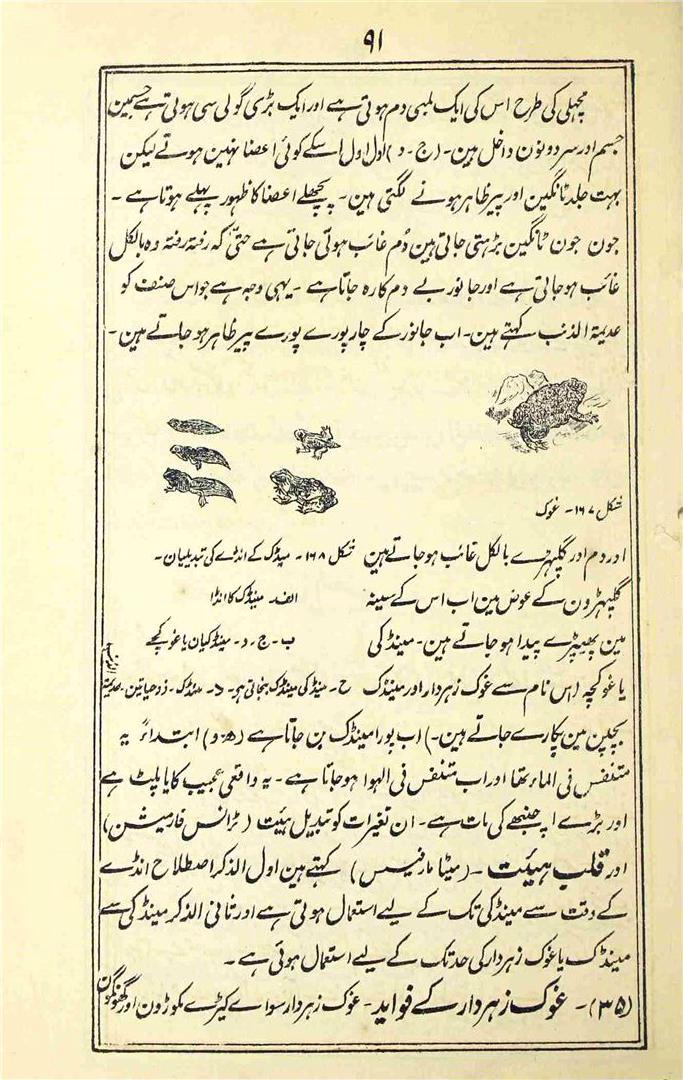 ۹۱
مچہلی کی طرح اس کی ایک لمبی دم ہوتی ہے اور ایک بڑی گولی سی ہوتی ہے جسمین
جسم اور سر دونون داخل ہین۔ (ج۔ د) اول اول اسکے کوئی اعضا نہین ہوتے لیکن
بہت جلد ٹانگین اور پیر ظاہر ہونے لگتی ہین۔ پچھلے اعضا کا ظہور پہلے ہوتا ہے۔
جون جون ٹانگین بڑہتی جاتی ہین دُم غائب ہوتی جاتی ہے حتیٰ کہ رفتہ رفتہ وہ بالکل
غائب ہوجاتی ہے اور جانور بے دم کا رہ جاتا ہے۔ یہی وجہ ہے جو اس صنف کو
عدیمۃ الذنب کہتے ہین۔ اب جانور کے چار پورے پورے پیر ظاہر ہو جاتے ہین۔
شکل ۱۶۷۔ غوک
اور دم اور گلپہڑے بالکل غائب ہو جاتے ہین
شکل ۱۶۸۔ مینڈک کے انڈے کی تبدیلیان۔
گلپہڑون کے عوض مین اب اس کے سینہ
الف۔ مینڈک کا انڈا
مین پھیپڑے پیدا ہو جاتے ہین۔ مینڈکی
ب۔ ج۔ د۔ مینڈکیان یا غوکچے
یا غوکچہ (اس نام سے غوک زہردار اور مینڈک
ح۔ مینڈکی مینڈک بنجاتی ہو۔ د۔ مینڈک۔ ذوحیاتین۔ عدیمۃ
بچپن مین پکارے جاتے ہین۔) اب پورا مینڈک بن جاتا ہے (ھ۔ و) ابتداءً یہ
متنفس فی الماء تھا اور اب متنفس فی الہوا ہوجاتا ہے۔ یہ واقعی عجیب کایا پلٹ ہے
اور بڑے اچنبھے کی بات ہے۔ ان تغیرات کو تبدیل ہیئت (ٹرانس فارمیشن)
اور قلب ہیئت۔ (میٹا مارفیسس) کہتے ہین اول الذکر اصطلاح انڈے
کے وقت سے مینڈکی تک کے لیے استعمال ہوتی ہے اور ثانی الذکر مینڈکی سے
مینڈک یا غوک زہردار کی حد تک کے لیے استعمال ہوئی ہے۔
(۳۵)۔ غوک زہردار کے فواید۔ غوک زہردار سواے کیڑے مکوڑون اور گھونگون